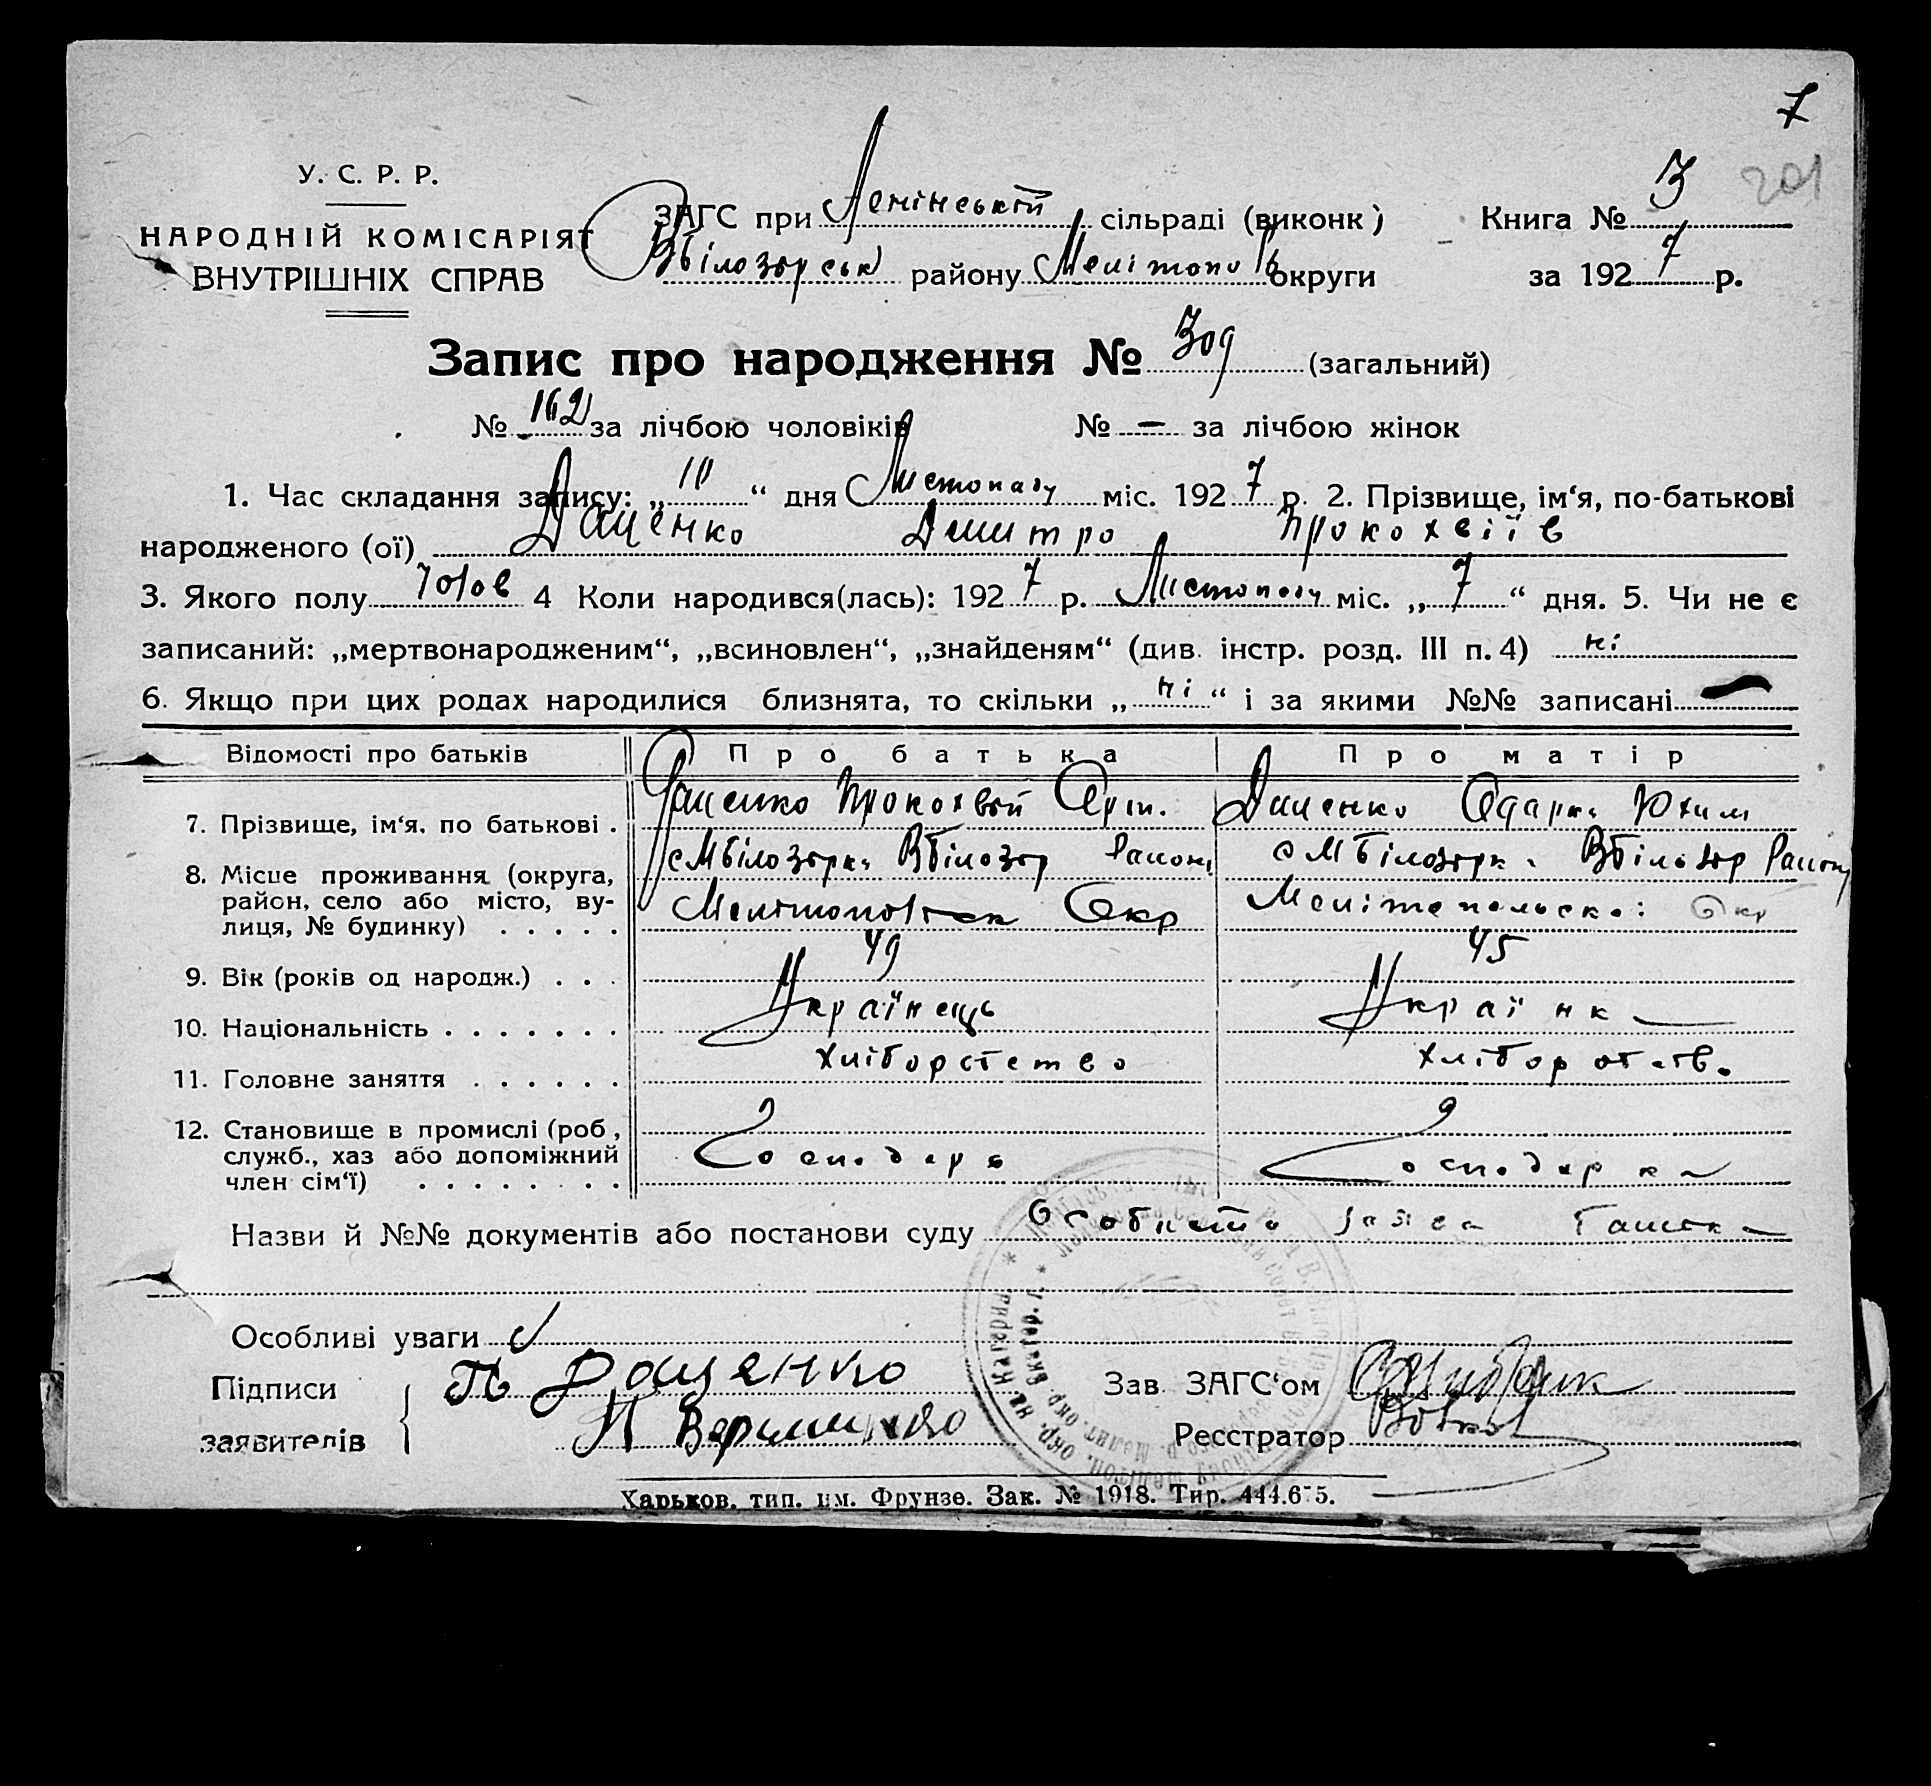 7
201
У. С. Р. Р.
НАРОДНІЙ КОМІСАРІЯТ
ВНУТРІШНІХ СПРАВ
ЗАГС при Ленінській сільраді (виконк) Книга № 3
Вбілозерськ району Мелітопол округи за 1927 р.
Запис про народження № 309 (загальний)
№ 162 за лічбою чоловіків № — за лічбою жінок
1. Час складання запису: „10“ дня Листопаду міс. 1927 р. 2. Прізвище, ім‘я, по-батькові
народженого (ої) Даценко Дмитро Прокохвіїв
3. Якого полу чолов 4 Коли народився(лась): 1927 р. Листопаду міс. „7“ дня. 5. Чи не є
записаний: „мертвонародженим“, „всиновлен“, „знайденям“ (див. інстр. розд. III п. 4) ні
6. Якщо при цих родах народилися близнята, то скільки „ні“ і за якими №№ записані —
Відомості про батьків Про батька Про матір
7. Прізвище, ім‘я. по батькові . Даценко Прокохвій Даценко Одарка Юхим
8. Місце проживання (округа, район, село або місто, вулиця, № будинку) . . . . . с Мбілозерка Вбілозер Району с Мбілозерка Вбілозер Району
Окр Мелітопольської Окр
9. Вік (років од народж.) . . . 49 45
10. Національність . . . . . . . Українець Українка
11. Головне заняття . . . . . . хліборобство хліборобств.
12. Становище в промислі (роб, служб., хаз або допоміжний член сім‘ї) . . . . . . . . Господарь Господарка
Назви й №№ документів або постанови суду Особиста заява
Особливі уваги
Підписи заявителів П Даценко
Зав. ЗАГС‘ом
Ресстратор
Харьков. тип. им. Фрунзе. Зак. № 1918. Тир. 444.675.